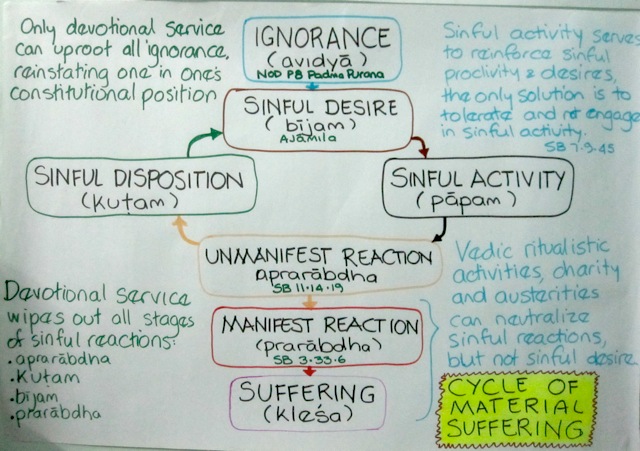 Only devotional service
can uproot all ignorance,
reinstating one in one's
constitutional position
IGNORANCE
(avidyā)
NOD P8 Padma Purana
Sinful activity serves
to reinforce sinful
proclivity & desires,
the only solution is to
tolerate and not engage
in sinful activity.
SB 7.9.45
SINFUL DESIRE
(bījam)
AJāmila
SINFUL DISPOSITION
(Kuṭam)
SINFUL ACTIVITY
(pāpam)
UNMANIFEST REACTION
Aprarābdha
SB 11.14.19
MANIFEST REACTION
(prarābdha)
SB 3.33.6
SUFFERING
(kleśa)
Devotional service
wipes out all stages
of sinful reactions:
.aprarābdha
.Kuṭam
.bījam
.prarābdha
Vedic ritualistic
activities, charity
and austerities
can neutralize
sinful reactions,
but not sinful desire
CYCLE OF
MATERIAL
SUFFERING